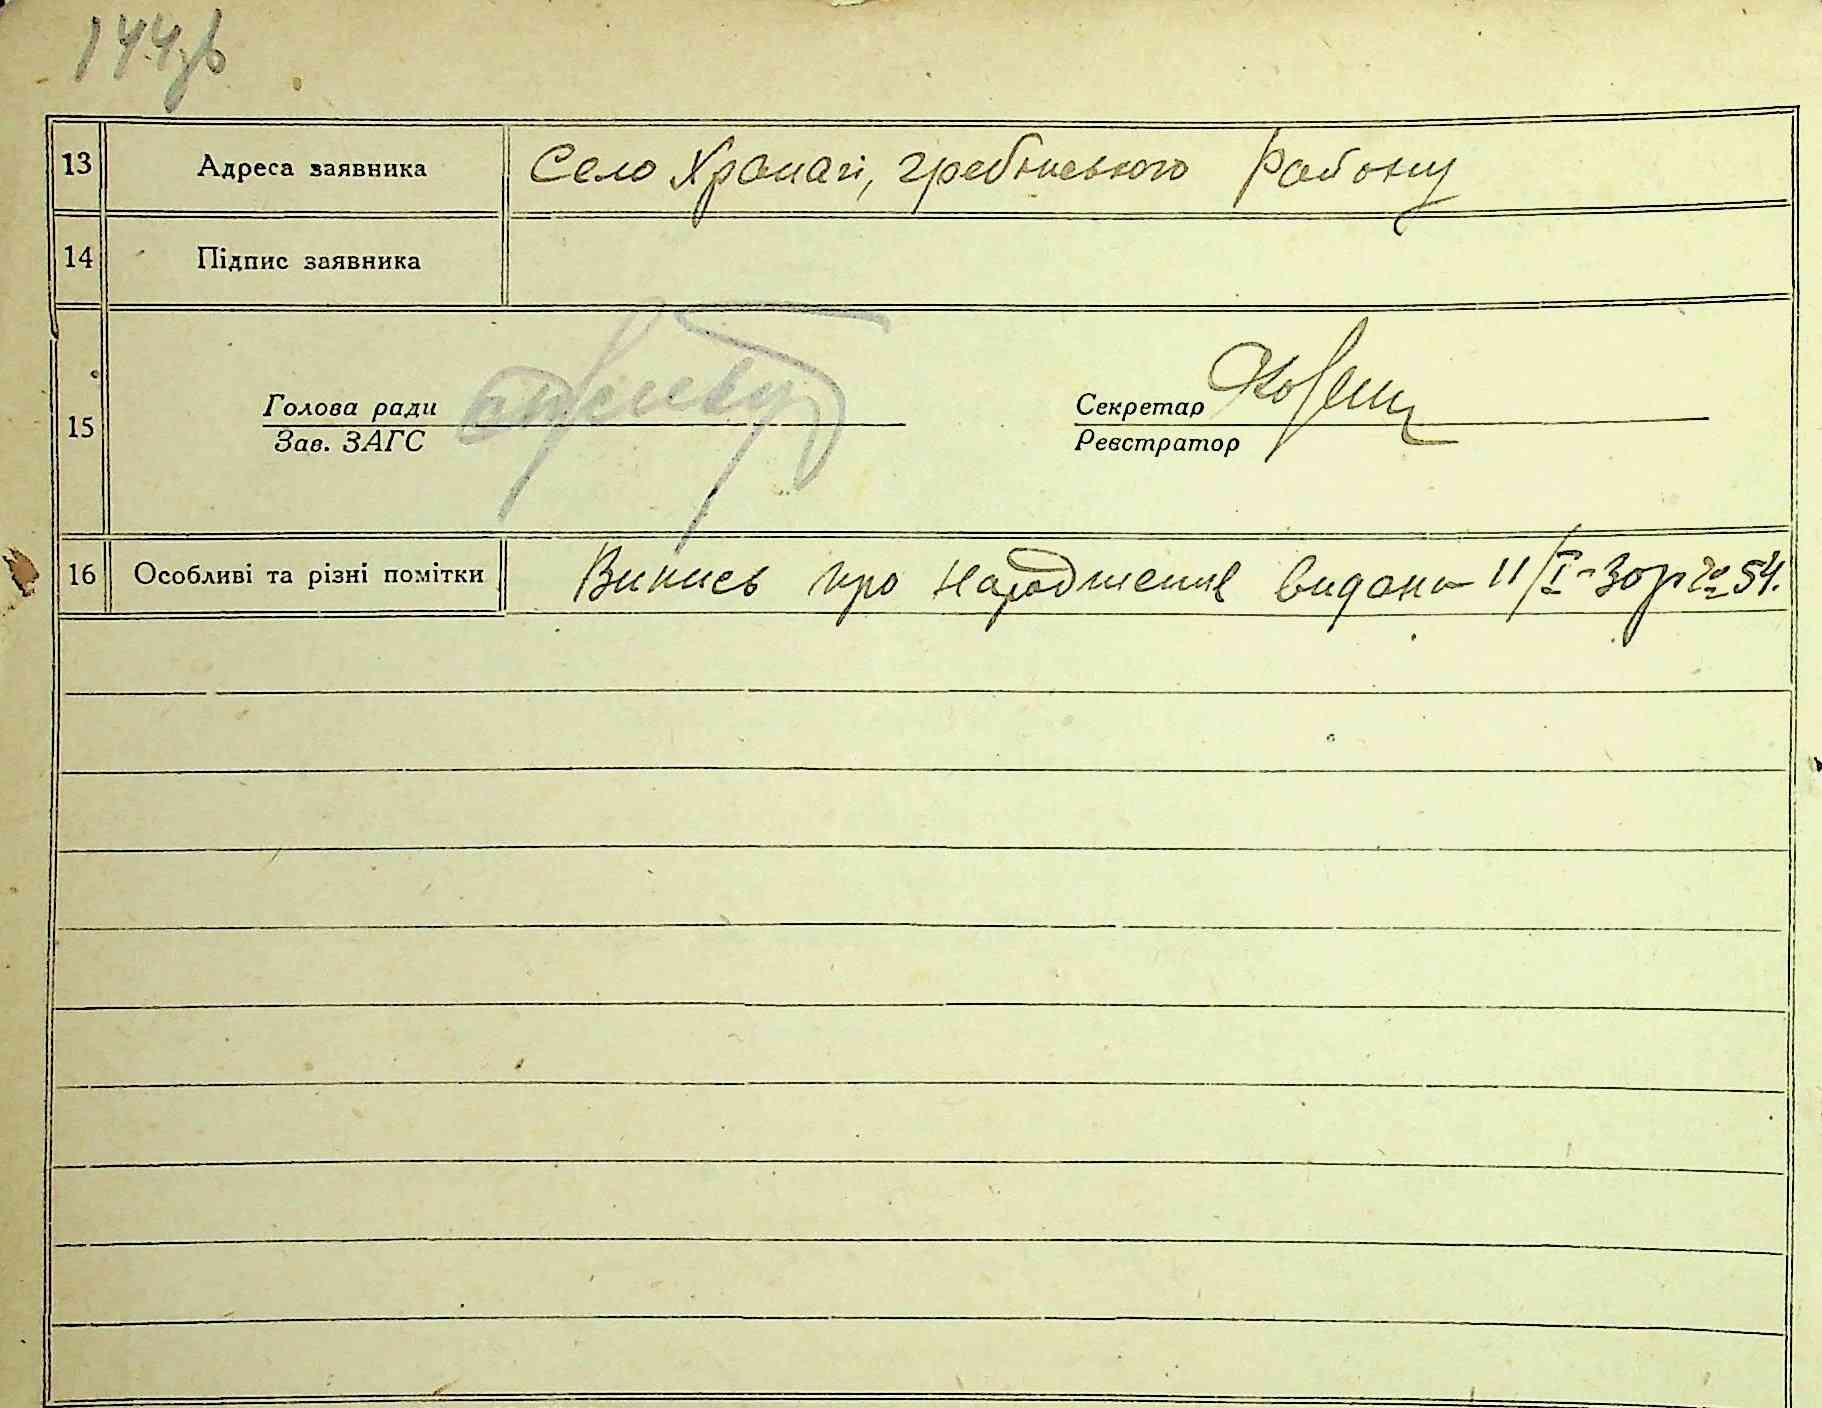 144зв
13 Адреса заявника Село Храпачі, гребінського Району
14 Підпис заявника
15 Голова ради Секретар
Зав. ЗАГС Реєстратор
16 Особливі та різні помітки Випись про народження видана 11/I-30р № 54.